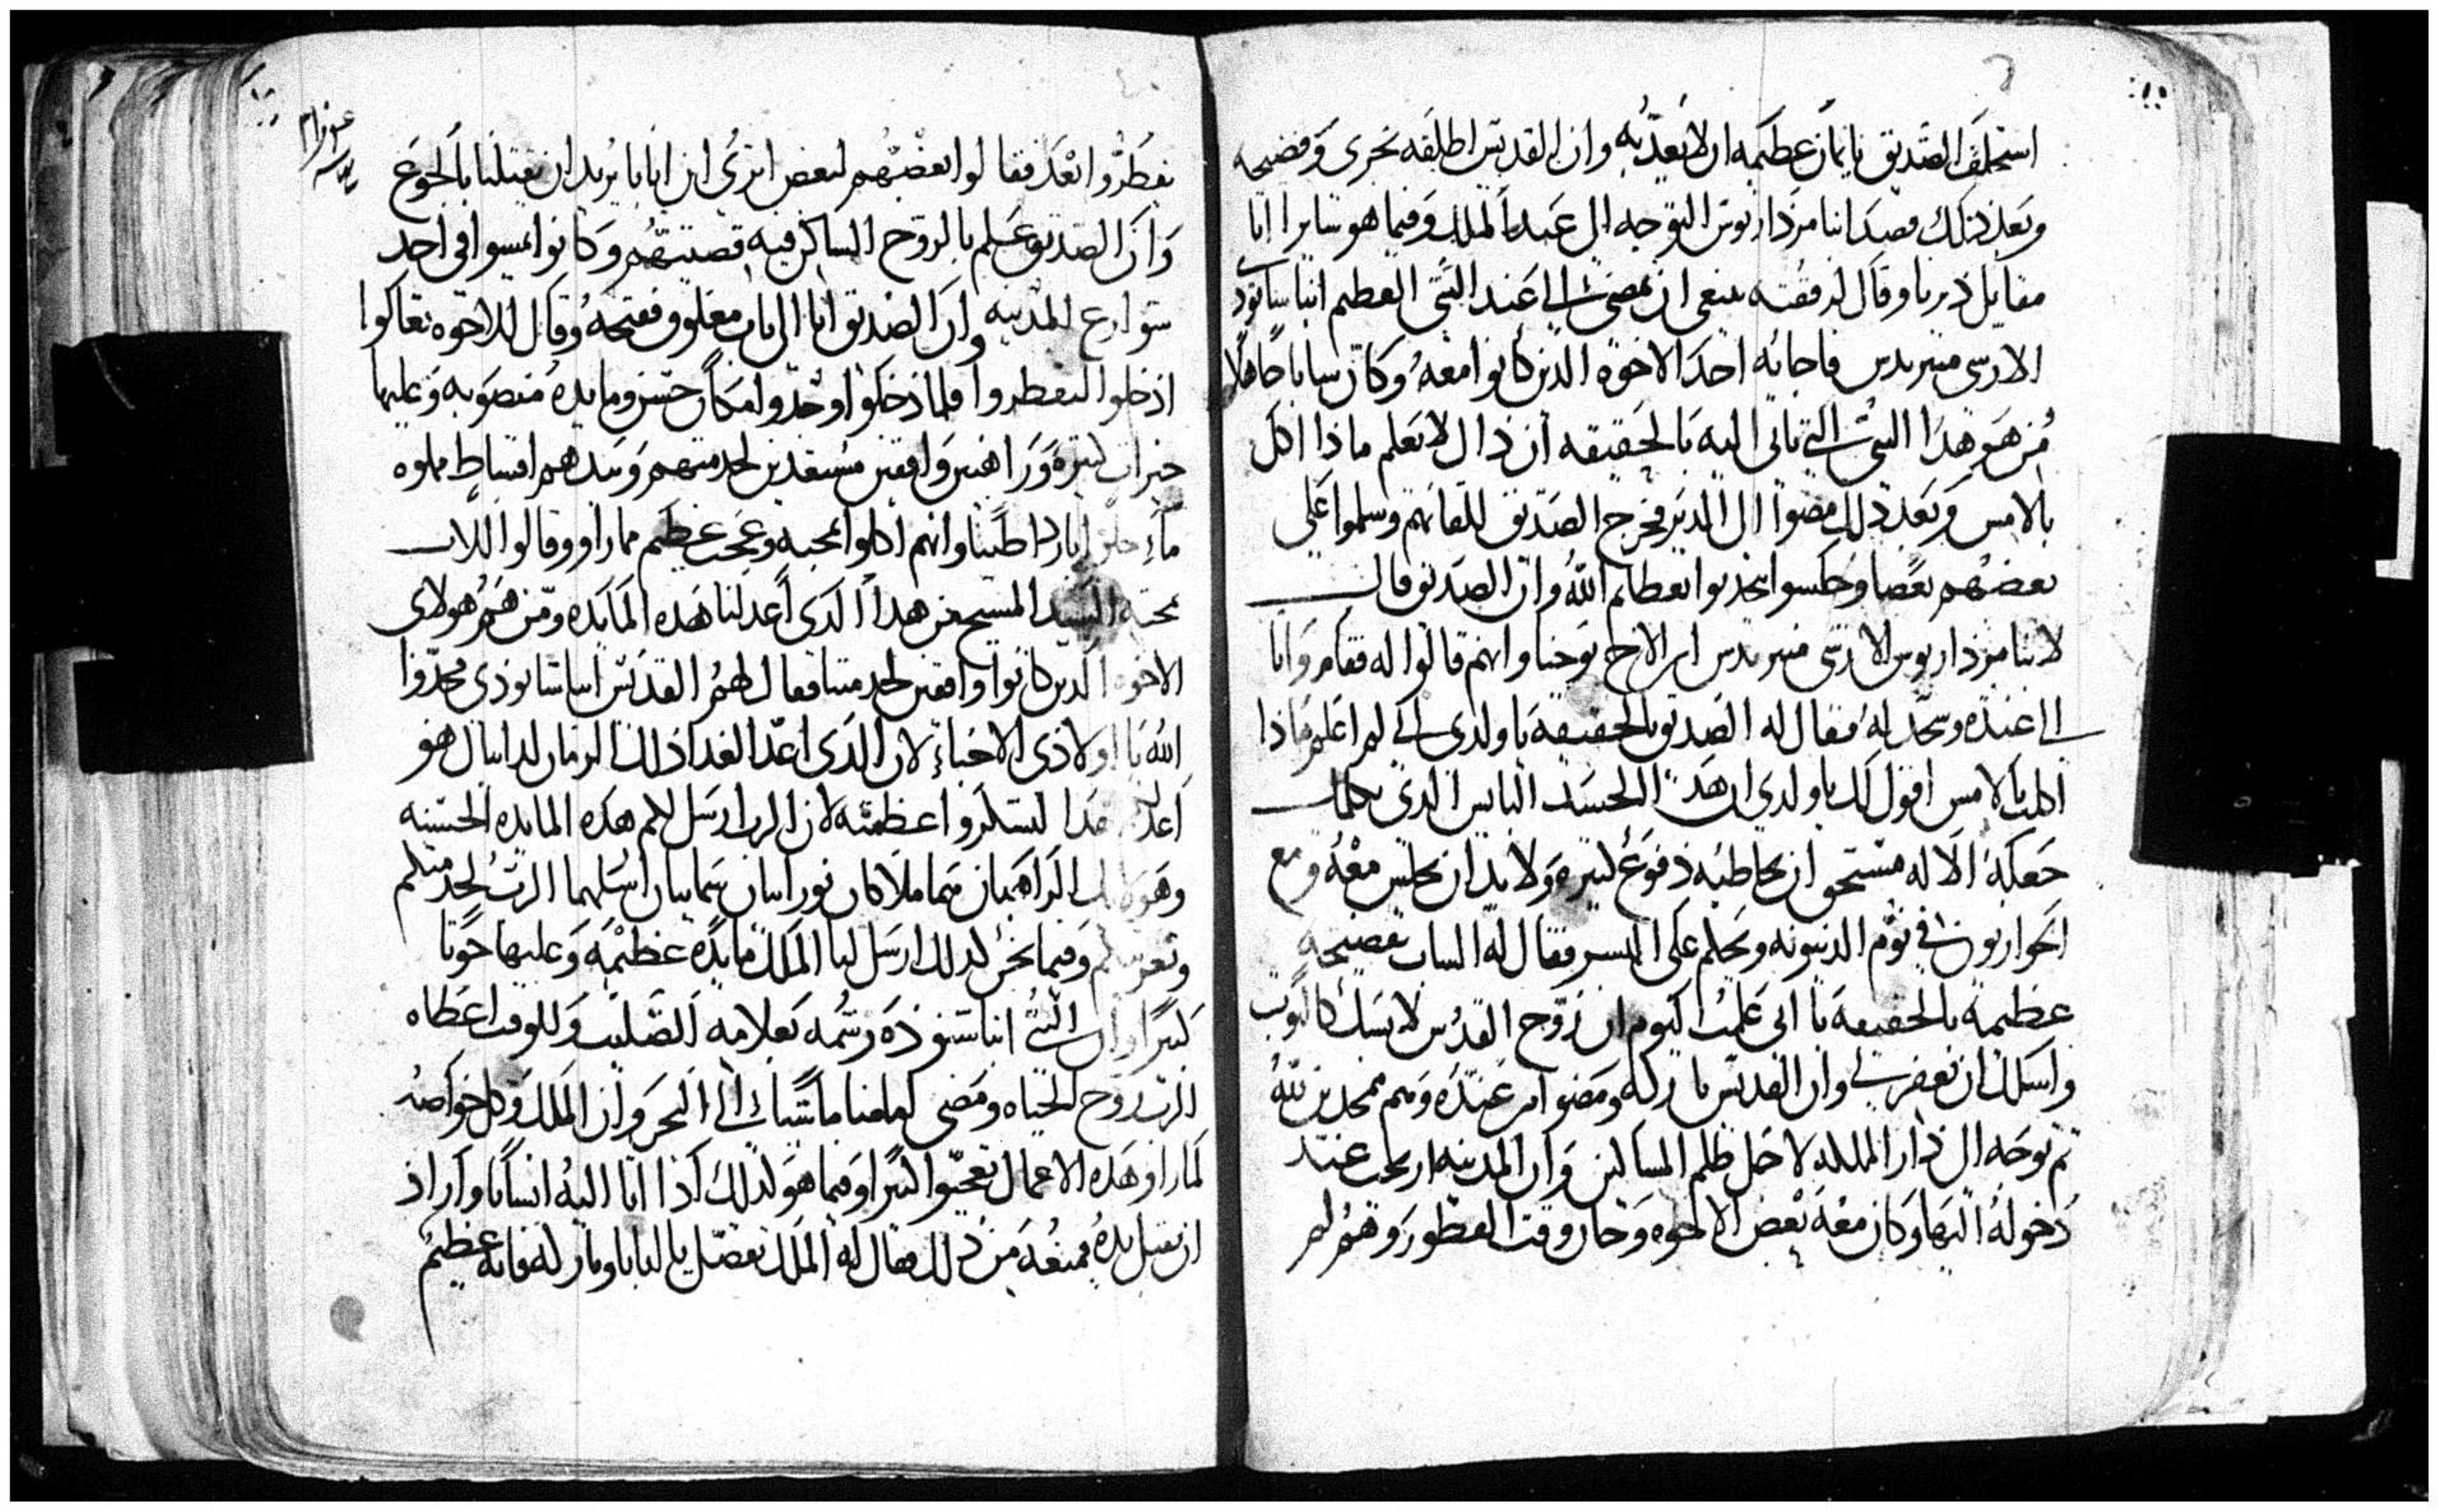 استحلف الصديق بايمان عظيمه ان لا يعذبه وان القديس اطلقه بخزى وفضيحه
وبعد ذلك قصد انبا مزداريوس التوجه الى عند الملك وفيما هو ساير اتا
مقابل ديرنا وقال لرفقته ينبغى ان نمضى الى عند النبى العظيم انبا سابود
الارسى مندريدس فاجابه احد الاخوه الذين كانوا معه وكان شابا جاهلا
من هو هذا النبى التى تاتى اليه بالحقيقه ان ذاك لا يعلم ماذا اكل
بالامس وبعد ذلك مضوا الى الدير فخرج الصديق للقائهم وسلموا على
بعضهم بعضا وجلسوا يتحدثوا بعظايم الله وان الصديق قال
لانبا مزداريوس الارسى مندريدس اين الاخ يوحنا وانهم قالوا له فقام واتا
الى عنده وسجد له فقال له الصديق بالحقيقه يا ولدى انى لم اعلم ماذا
اكلت بالامس اقول لك يا ولدى ان هذا الجسد اليابس الذى يكلمك
جعله الاله مستحق ان يخاطبه دفوع كتيره ولا بد ان يجلس معه ومع
الحواريون فى يوم الدينونه ويحكم على البشر فقال له الشاب بفضيحه
عظيمه بالحقيقه يا ابى علمت اليوم ان روح القدس لابسك كالثوب
واسلك ان تغفر لى وان القديس باركه ومضوا من عنده وهم ممجدين لله
ثم توجه الى دار المملكه لاجل ظلم المساكين وان المدينه ارتجت عند
دخوله اليها وكان معه بعض الاخوه وحان وقت الفطور وهم لم
يفطروا بعد فقالوا بعضهم لبعض اترى ابن ابانا يريد ان يقتلنا بالجوع
وان الصديق علم بالروح الساكن فيه قضيتهم وكانوا يمشوا فى احد
شوارع المدينه وان الصديق اتا الى باب مغلوق ففتحه وقال للاخوه تعالوا
ادخلوا لتفطروا فلما دخلوا وجدوا مكان حسن ومايده منصوبه وعليها
خيرات كتيره وراهبين واقفين مستعدين لخدمتهم وبيدهم اقساط مملوه
ماء حلو باردا طيبا وانهم اكلوا بمحبه وعجب عظيم مما راوو وقالوا للاب
محبه السيد المسيح من هذا الذى اعد لنا هذه المايده ومن هم هولاى
الاخوه الذين كانوا واقفين لخدمتنا فقال لهم القديس انبا شانودى مجدوا
الله يا اولادى الاحباء لان الذى اعد الغدا ذلك الزمان لدانيال هو
اعد لكم هذا لتشكروا عظمته لان الرب ارسل لكم هذه المايده الحسنه
وهولايك الراهبان هما ملاكان نورانيان سماييان ارسلهما الرب لخدمتكم
وتعزيتكم وفيما نحن كذلك ارسل لنا الملك مايده عظيمه وعليها حوتا
كبيرا وان النبى انبا شنوده رشمه بعلامه الصليب وللوقت اعطاه
الرب روح الحياه ومضى كعامنا ماشيا الى البحر وان الملك وكل خواصه
لما راو هذه الاعمال تعجبوا كتيرا وفيما هو كذلك اذا اتا اليه انسانا واراد
ان يقبل يده فمنعه من ذلك فقال له الملك تفضل يا لنابا وباركه فانه عظيم